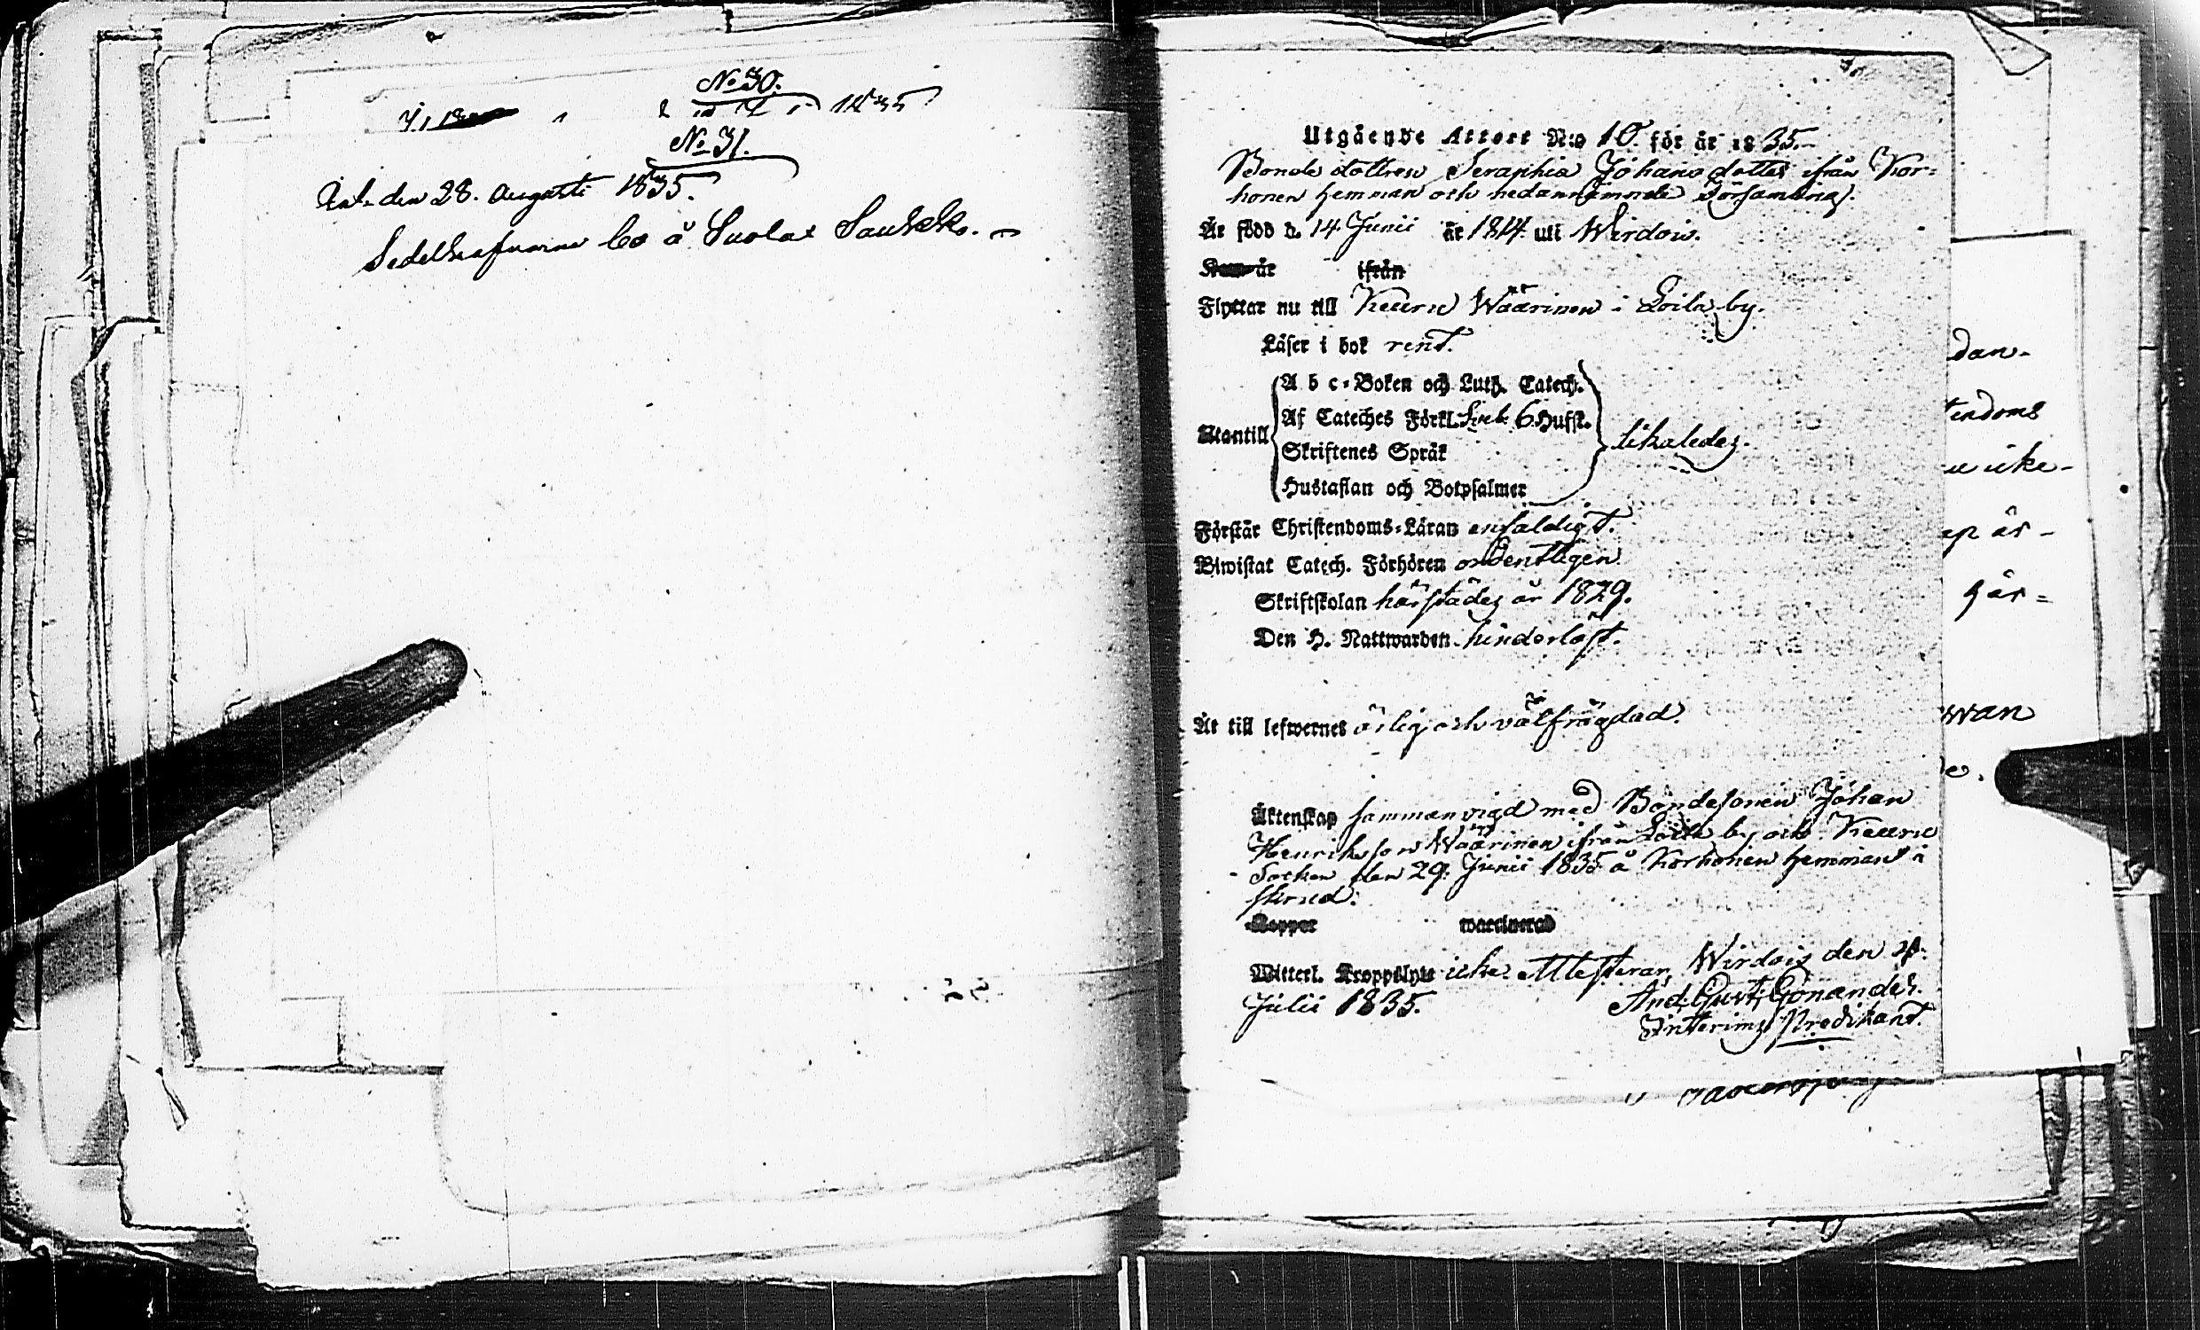 No 30.
1835
No 31.
Ank. den 28. Augusti 1835.
Sedelhafvarne bo å Suolax Saukko.
Utgående Attest N:o 10. för år 1835.
Bonde dottren Seraphia Johans dotter ifrån Kor-
honen hemman och nedannämnde Församling.
Är född d. 14 Junii år 1814 uti Wirdois.
Kom år ifrån
Flyttar nu till Keuru Wäärinen i Loila by.
Läser i bok rent.
A b c-Boken och Luth. Catech.
Af Cateches Förkl. Sveb. 6 Hufst.
Utantill likaledes.
Skriftenes Språk
Hustaflan och Botpsalmer
Förstår Christendoms-Läran enfaldigt.
Biwistat Catech. Förhören ordentligen
Skriftskolan härstädes år 1829.
Den H. Nattwarden hinderlöst.
Är till lefwernet ärlig och välfrägdad.
Äktenskap sammanvigd med Bondesonen Johan
Henriksson Wäärinen ifrån Loila by och Keuru
Socken den 29. Junii 1835 å Korhonen hemman i
Koppor waccinerad
Witterl. Kroppslyte icke. Attesterar, Wirdois den
Julii 1835. And. Gust. Gonander.
Interims Predikant.
dan-
endoms
icke-
är-
wan